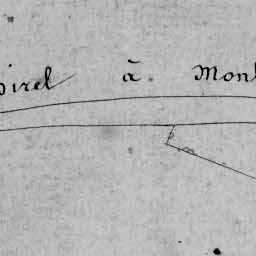 pirel à Mont